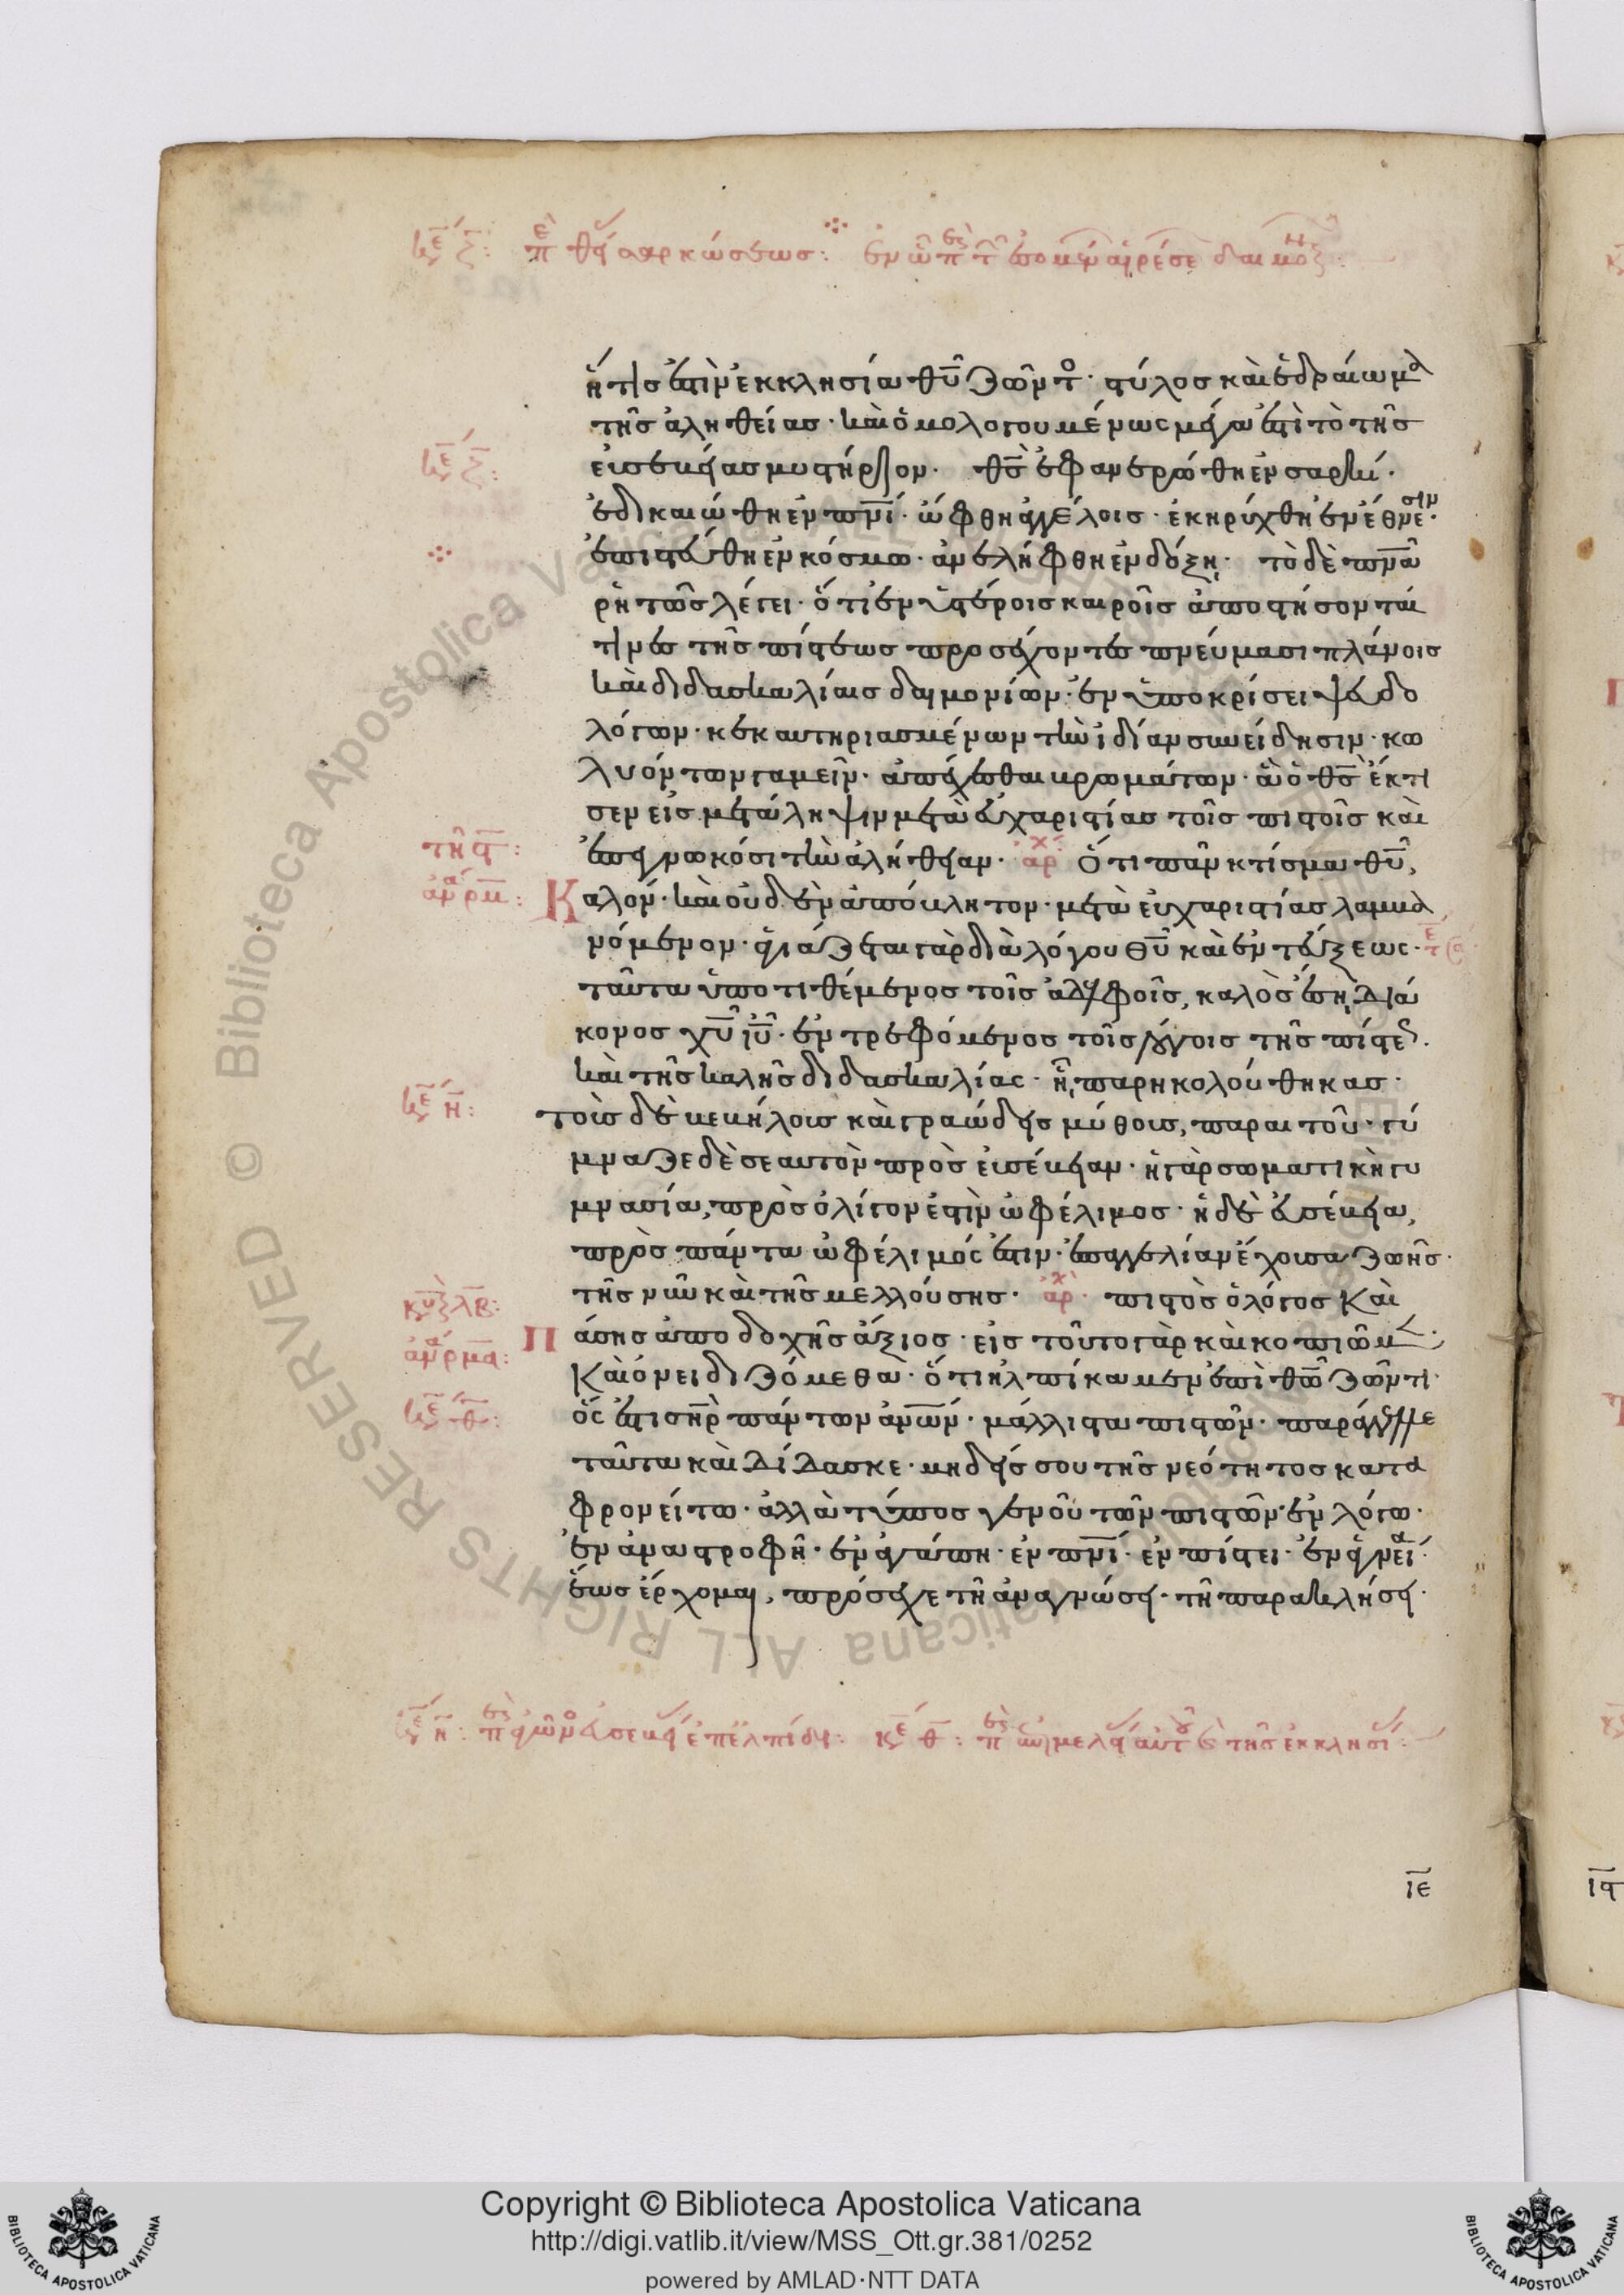 κε ζ: πε θείας σαρκώσεως: ἐν ὧ περὶ τῶν ἐσομένων αἱρέσεων
ἥτις ἐστὶν ἐκκλησία θυ ζῶντος· στύλος καὶ ἑδραίωμα
τῆς ἀληθείας· καὶ ὁμολογουμένως μέγα ἐστὶ τὸ τῆς
κε ζ:
εὐσεβείας μυστήριον· θς ἐφανερώθη ἐν σαρκί·
ἐδικαιώθη ἐν πνι· ὤφθη ἀγγέλοις· ἐκηρύχθη ἐν ἔθνεσιν·
ἐπιστεύθη ἐν κόσμω· ἀνελήφθη ἐν δόξη· τὸ δὲ πνα
ρητῶς λέγει· ὅτι ἐν ὑστέροις καιροῖς ἀποστήσονταί
τινες τῆς πίστεως προσέχοντες πνεύμασι πλάνοις
καὶ διδασκαλίαις δαιμονίων· ἐν ὑποκρίσει ψευδο
λόγων· κεκαυτηριασμένων τὴν ἰδίαν συνείδησιν· κω
λυόντων γαμεῖν· ἀπέχεσθαι βρωμάτων· ἃ ὁ θς ἔκτι
σεν εἰς μετάληψιν μετὰ εὐχαριστίας τοῖς πιστοῖς καὶ
τῆ ϛ:
ἐπεγνωκόσι τὴν ἀλήθειαν· ἀρχ Ὅτι πᾶν κτίσμα θυ,
ἀν ρμ:
Καλόν· καὶ οὐδὲν ἀπόβλητον· μετὰ εὐχαριστίας λαμβα
νόμενον· ἁγιάζεται γὰρ διὰ λόγου θυ καὶ ἐντεύξεως· τε
ταῦτα ὑποτιθέμενος τοῖς ἀδελφοῖς, καλὸς ἔση διά
κονος χυ ιυ· ἐντρεφόμενος τοῖς λόγοις τῆς πίστεως·
καὶ τῆς καλῆς διδασκαλίας· ἧ παρηκολούθηκας·
κε η:
τοὺς δὲ βεβήλους καὶ γραώδεις μύθους, παραιτοῦ· γύ
μναζε δὲ σεαυτὸν πρὸς εὐσέβειαν· ἡ γὰρ σωματικὴ γυ
μνασία, πρὸς ὀλίγον ἐστὶν ὠφέλιμος· ἡ δὲ εὐσέβεια,
πρὸς πάντα ὠφέλιμός ἐστιν· ἐπαγγελίαν ἔχουσα ζωῆς·
κυ λβ:
τῆς νῦν καὶ τῆς μελλούσης· ἀρχ· πιστὸς ὁ λόγος καὶ
ἀν ρμα:
Πάσης ἀποδοχῆς ἄξιος· εἰς τοῦτο γὰρ καὶ κοπιῶμεν·
καὶ ὀνειδιζόμεθα· ὅτι ἠλπίκαμεν ἐπὶ θω ζῶντι·
κε θ:
ὅς ἐστι σηρ πάντων ἀνων· μάλλιστα πιστῶν· παράγγελλε
ταῦτα καὶ δίδασκε· μηδείς σου τῆς νεότητος κατα
φρονείτω· ἀλλὰ τύπος γενοῦ τῶν πιστῶν· ἐν λόγω·
ἐν ἀναστροφῆ· ἐν ἀγάπη· ἐν πνι· ἐν πίστει· ἐν ἁγνεία·
ἕως ἔρχομαι, πρόσεχε τῆ ἀναγνώσει· τῆ παρακλήσει·
κε η: περὶ εὐσεβεί ἐπ ἐλπίδι: κε θ: περὶ ἐπιμελεί αὐτοῦ τε τῆς ἐκκλησί:
ιε
ιϛ
Biblioteca Apostolica Vaticana
ALL RIGHTS RESERVED ©
Copyright © Biblioteca Apostolica Vaticana
http://digi.vatlib.it/view/MSS_Ott.gr.381/0252
powered by AMLAD·NTT DATA
BIBLIOTECA APOSTOLICA VATICANA
BIBLIOTECA APOSTOLICA VATICANA